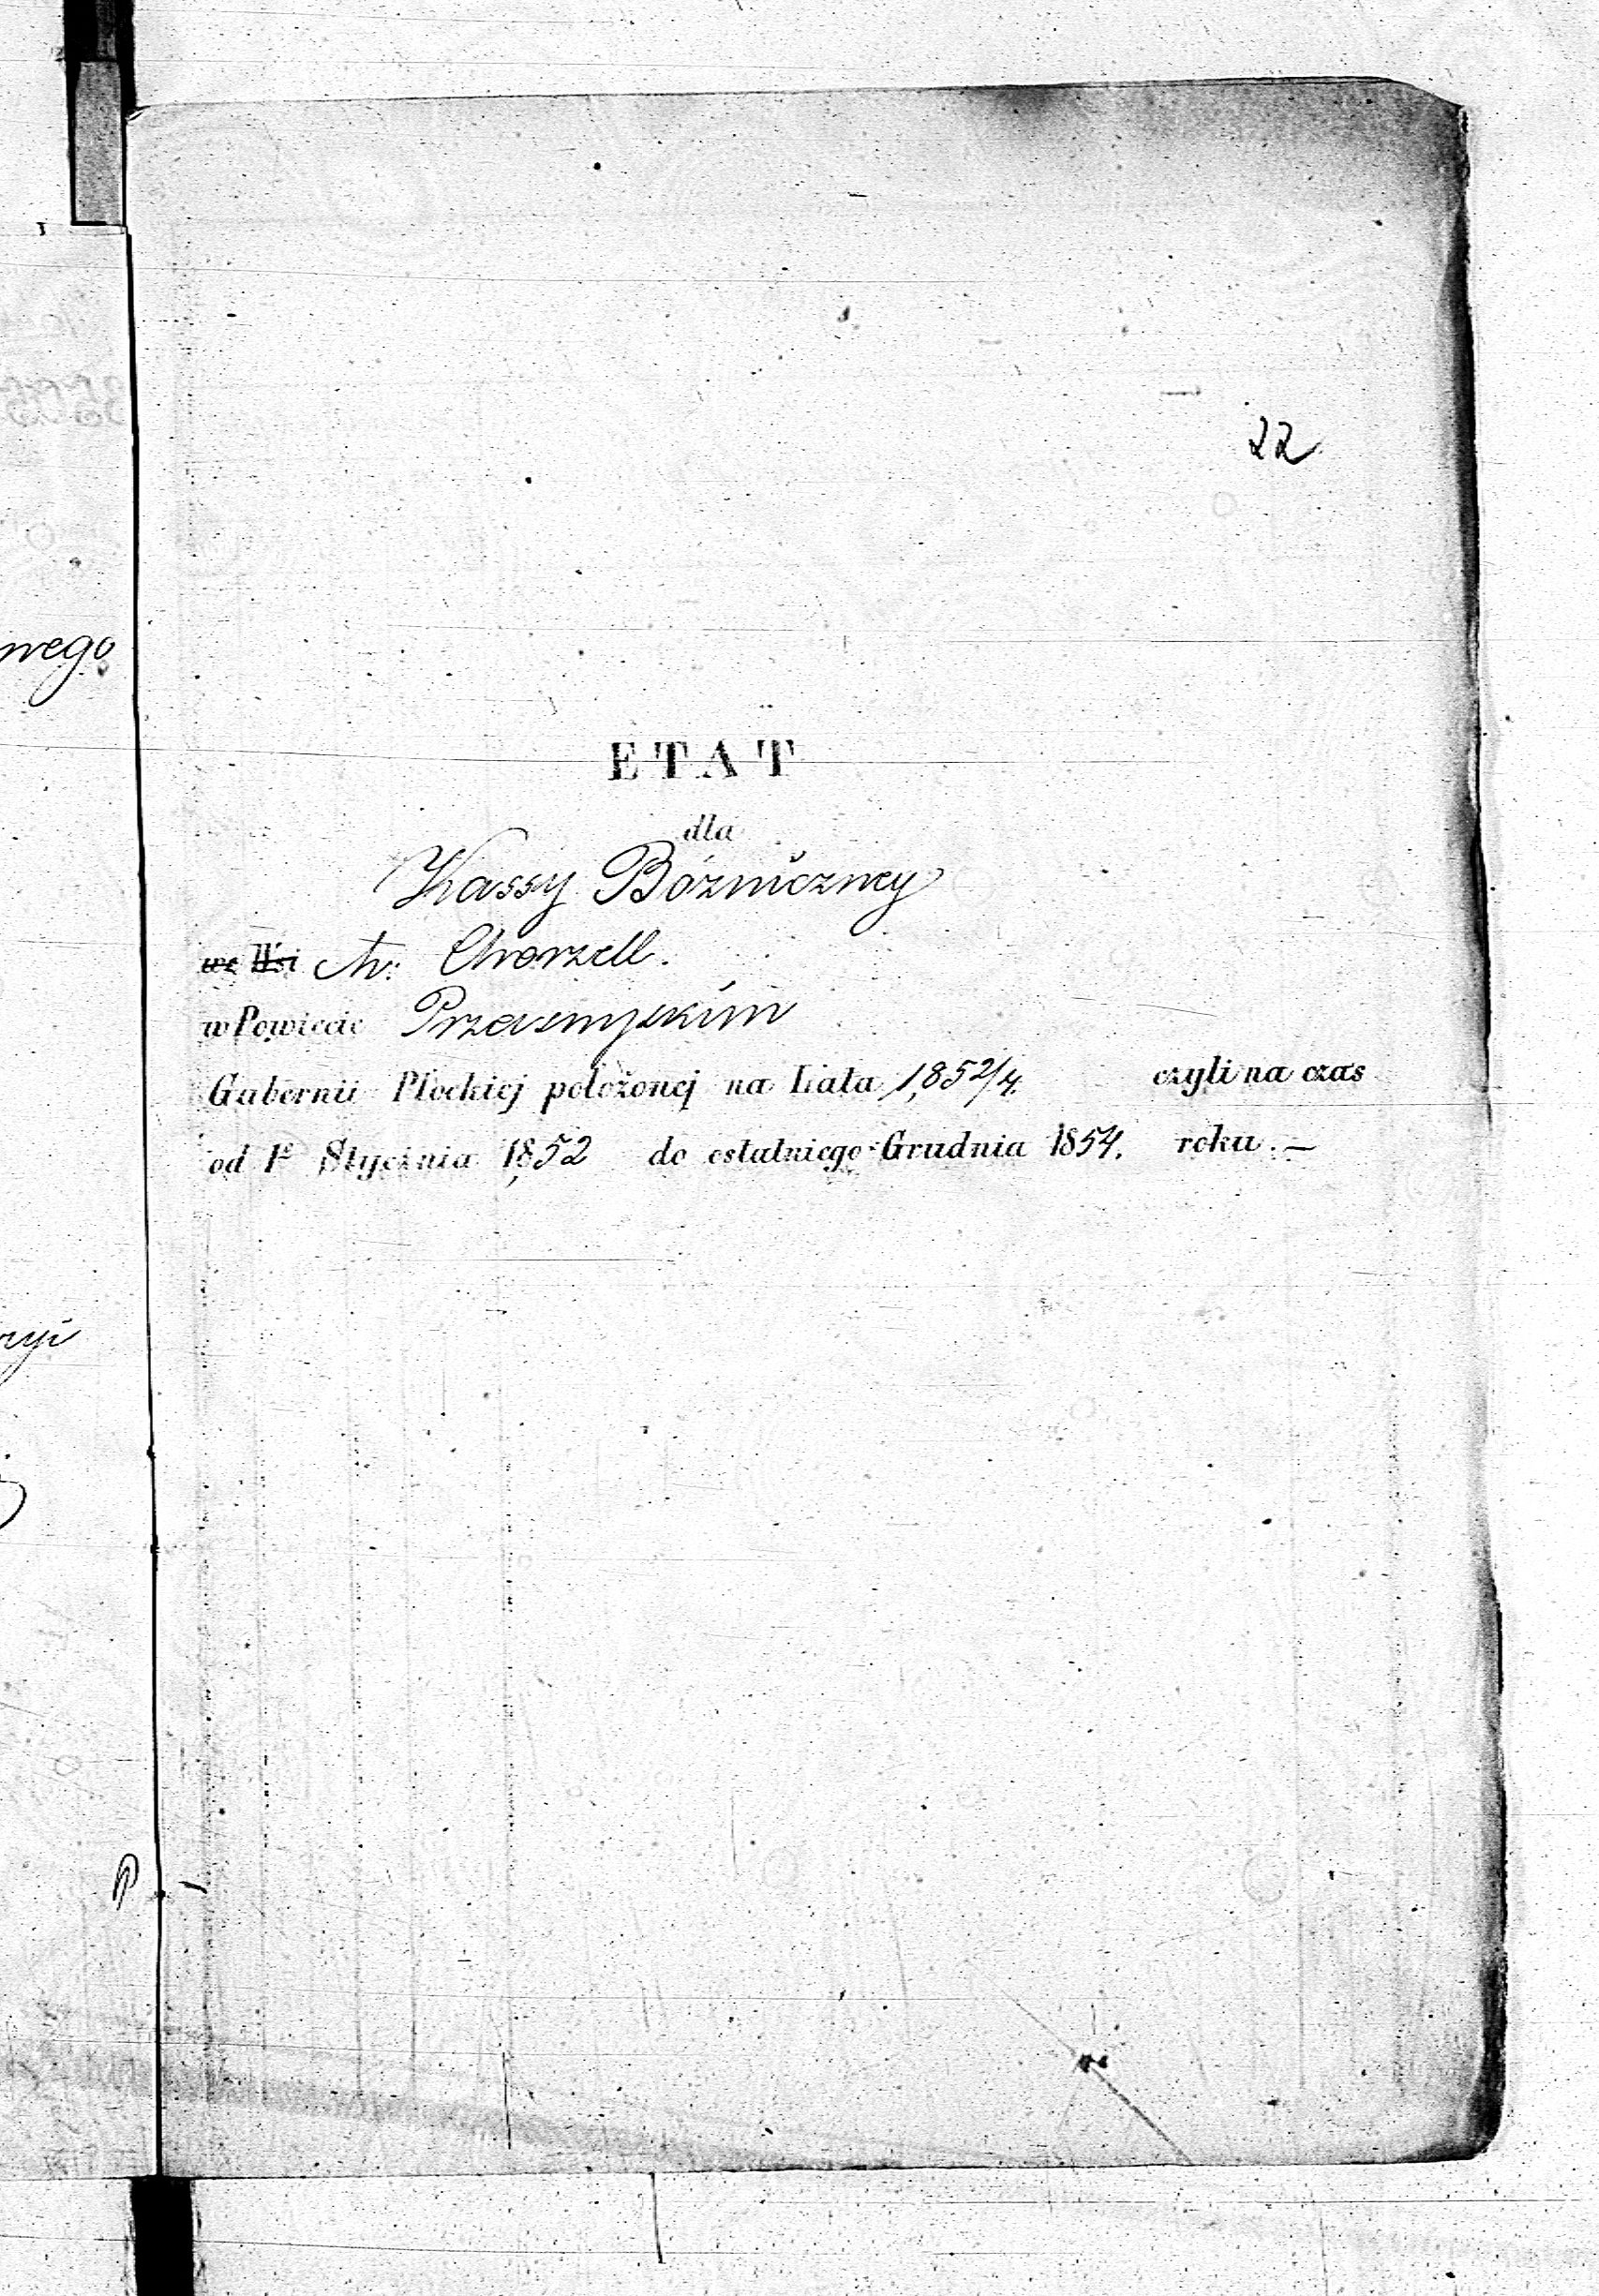 22
wego
ETAT
dla
Kassy Bóźniczney
we Wsi M. Chorzell.
w Powiecie Przasnyskim
Gubernii Płockiej położonej na Lata 1852/4. czyli na czas
ryi
od 1o Stycznia 1852 do ostatniego Grudnia 1854. roku. —